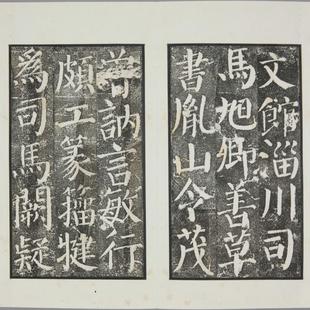 文館淄川司
馬旭卿善草
書胤山令茂
曾訥言敏行
頗工篆籀犍
爲司馬闕疑